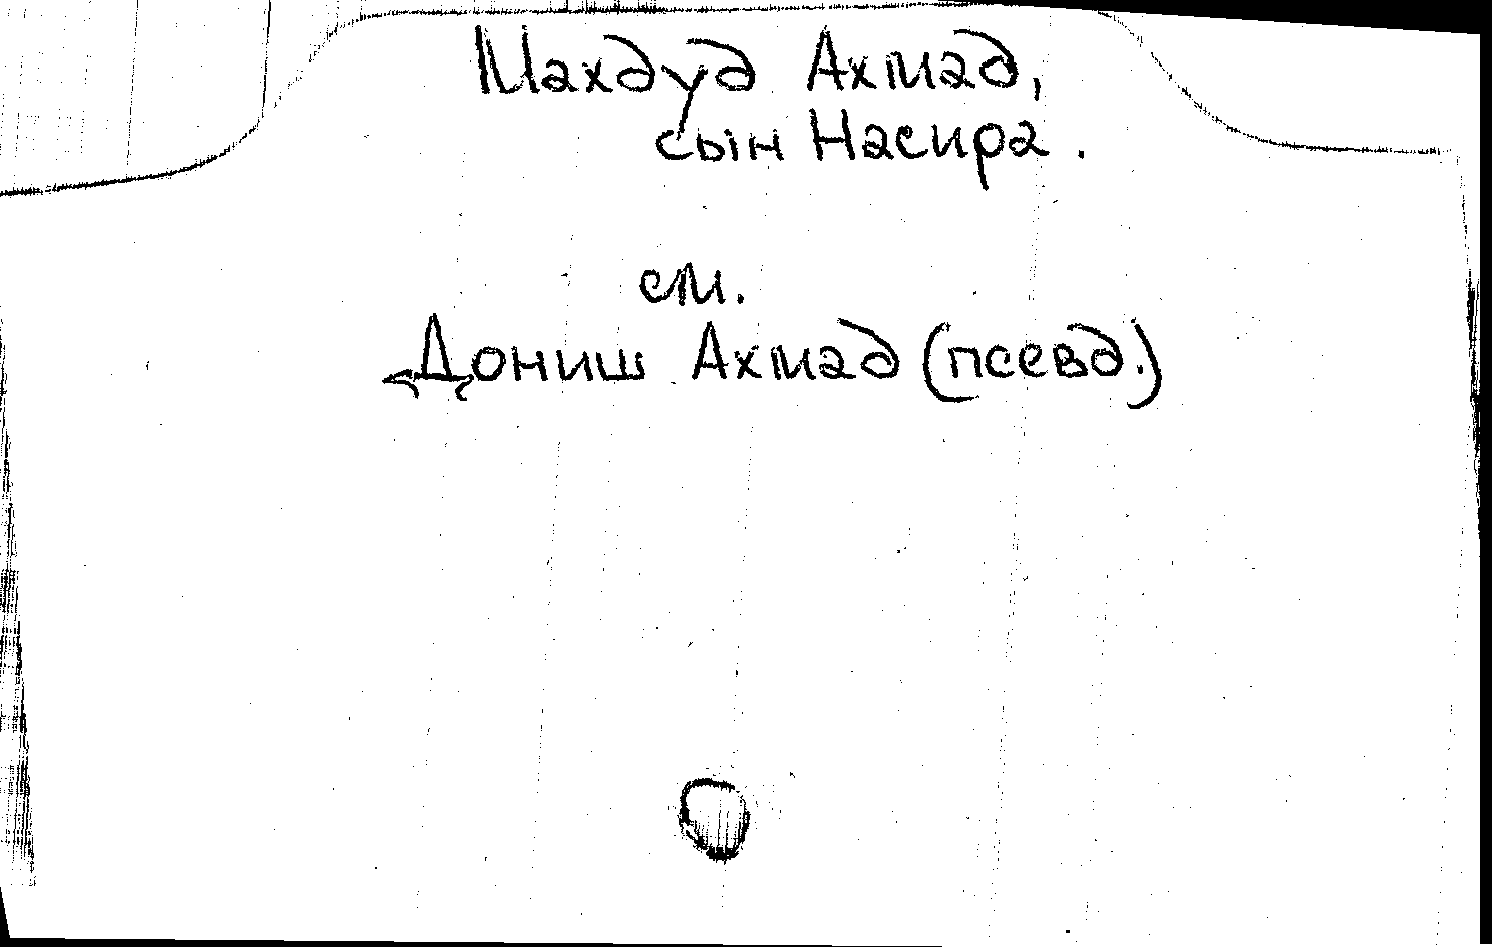 Махдуд Ахмад,
сын Насира.
см.
Дониш Ахмад (псевд.)